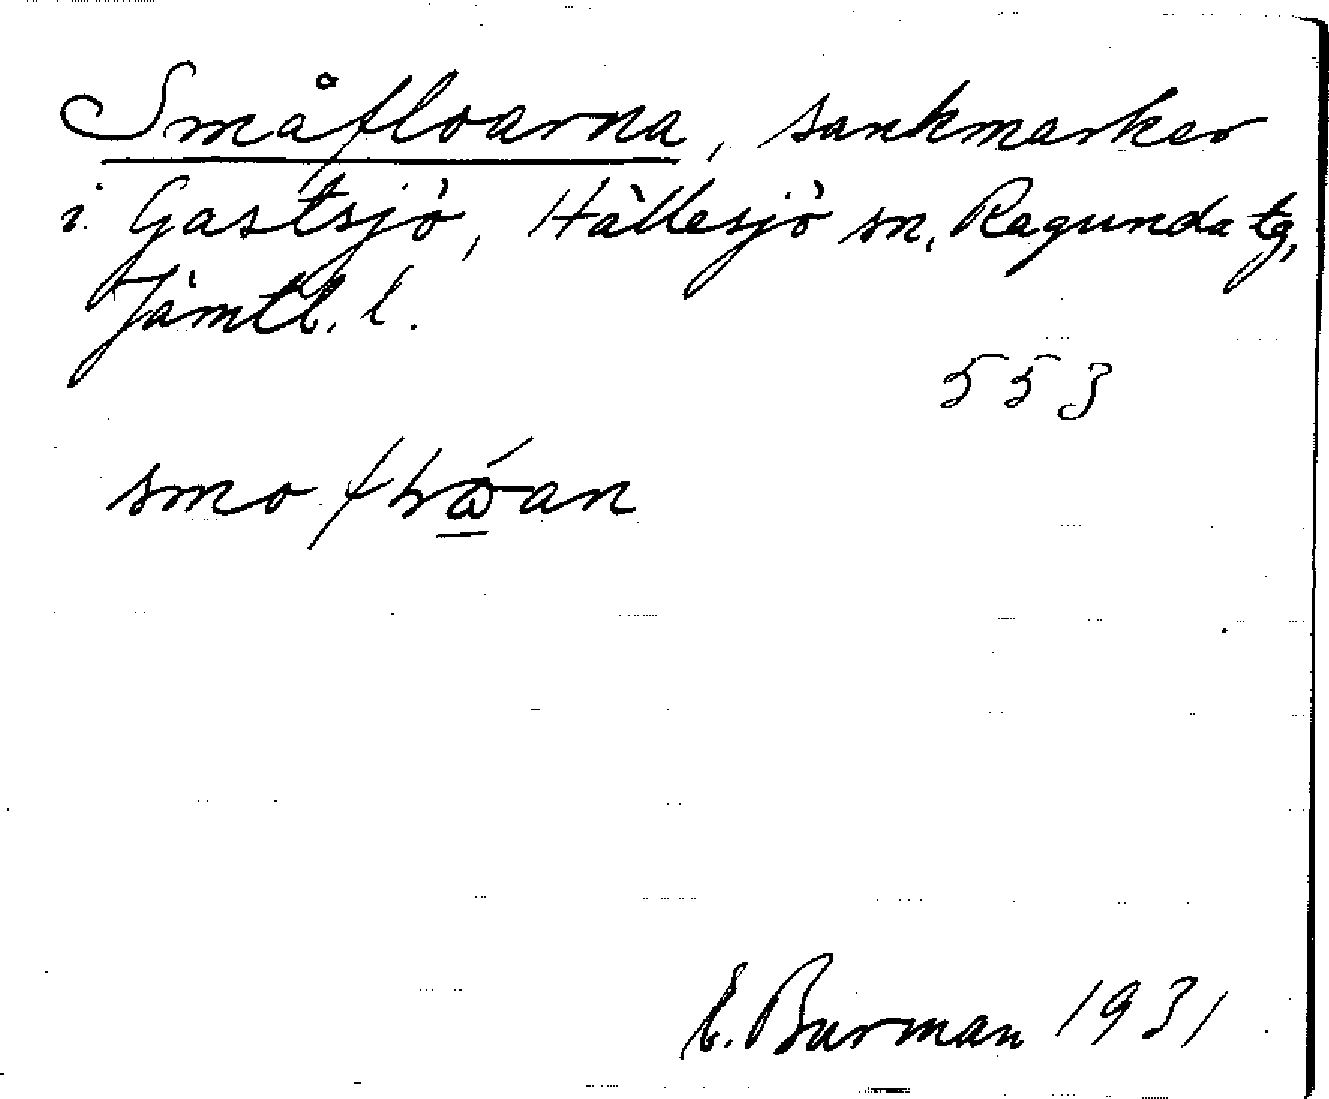 Småfloarna, sankmarker
i Gastsjö, Hällesjö sn, Ragunda tg,
Jämtl. l.
553
E. Burman 1931